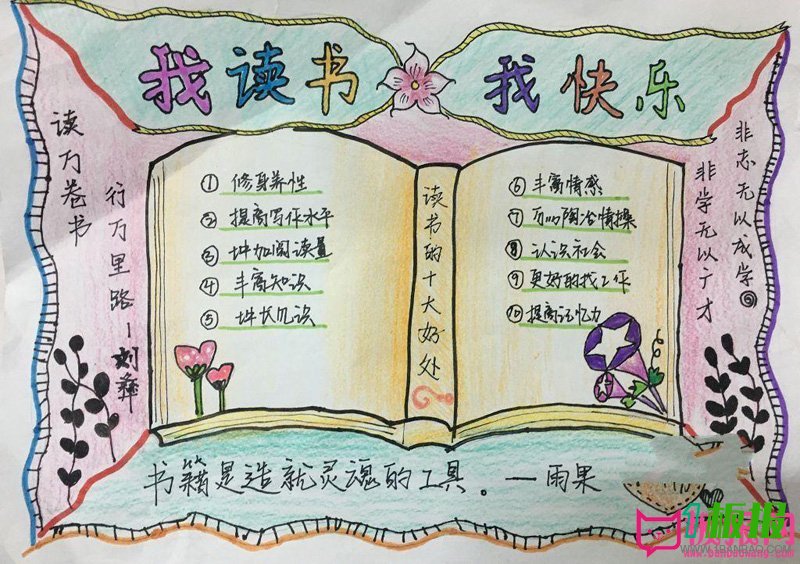 我读书 我快乐
读万卷书
行万里路—刘彝
①修身养性
②提高写作水平
③增加阅读量
④丰富知识
⑤增长见识
读书的十大好处
⑥丰富情感
⑦可以陶冶情操
⑧认识社会
⑨更好的找工作
⑩提高记忆力
非志无以成学
非学无以广才
书籍是造就灵魂的工具。—雨果
板报
WWW.3BANBAO.COM
www.banbaowang.com